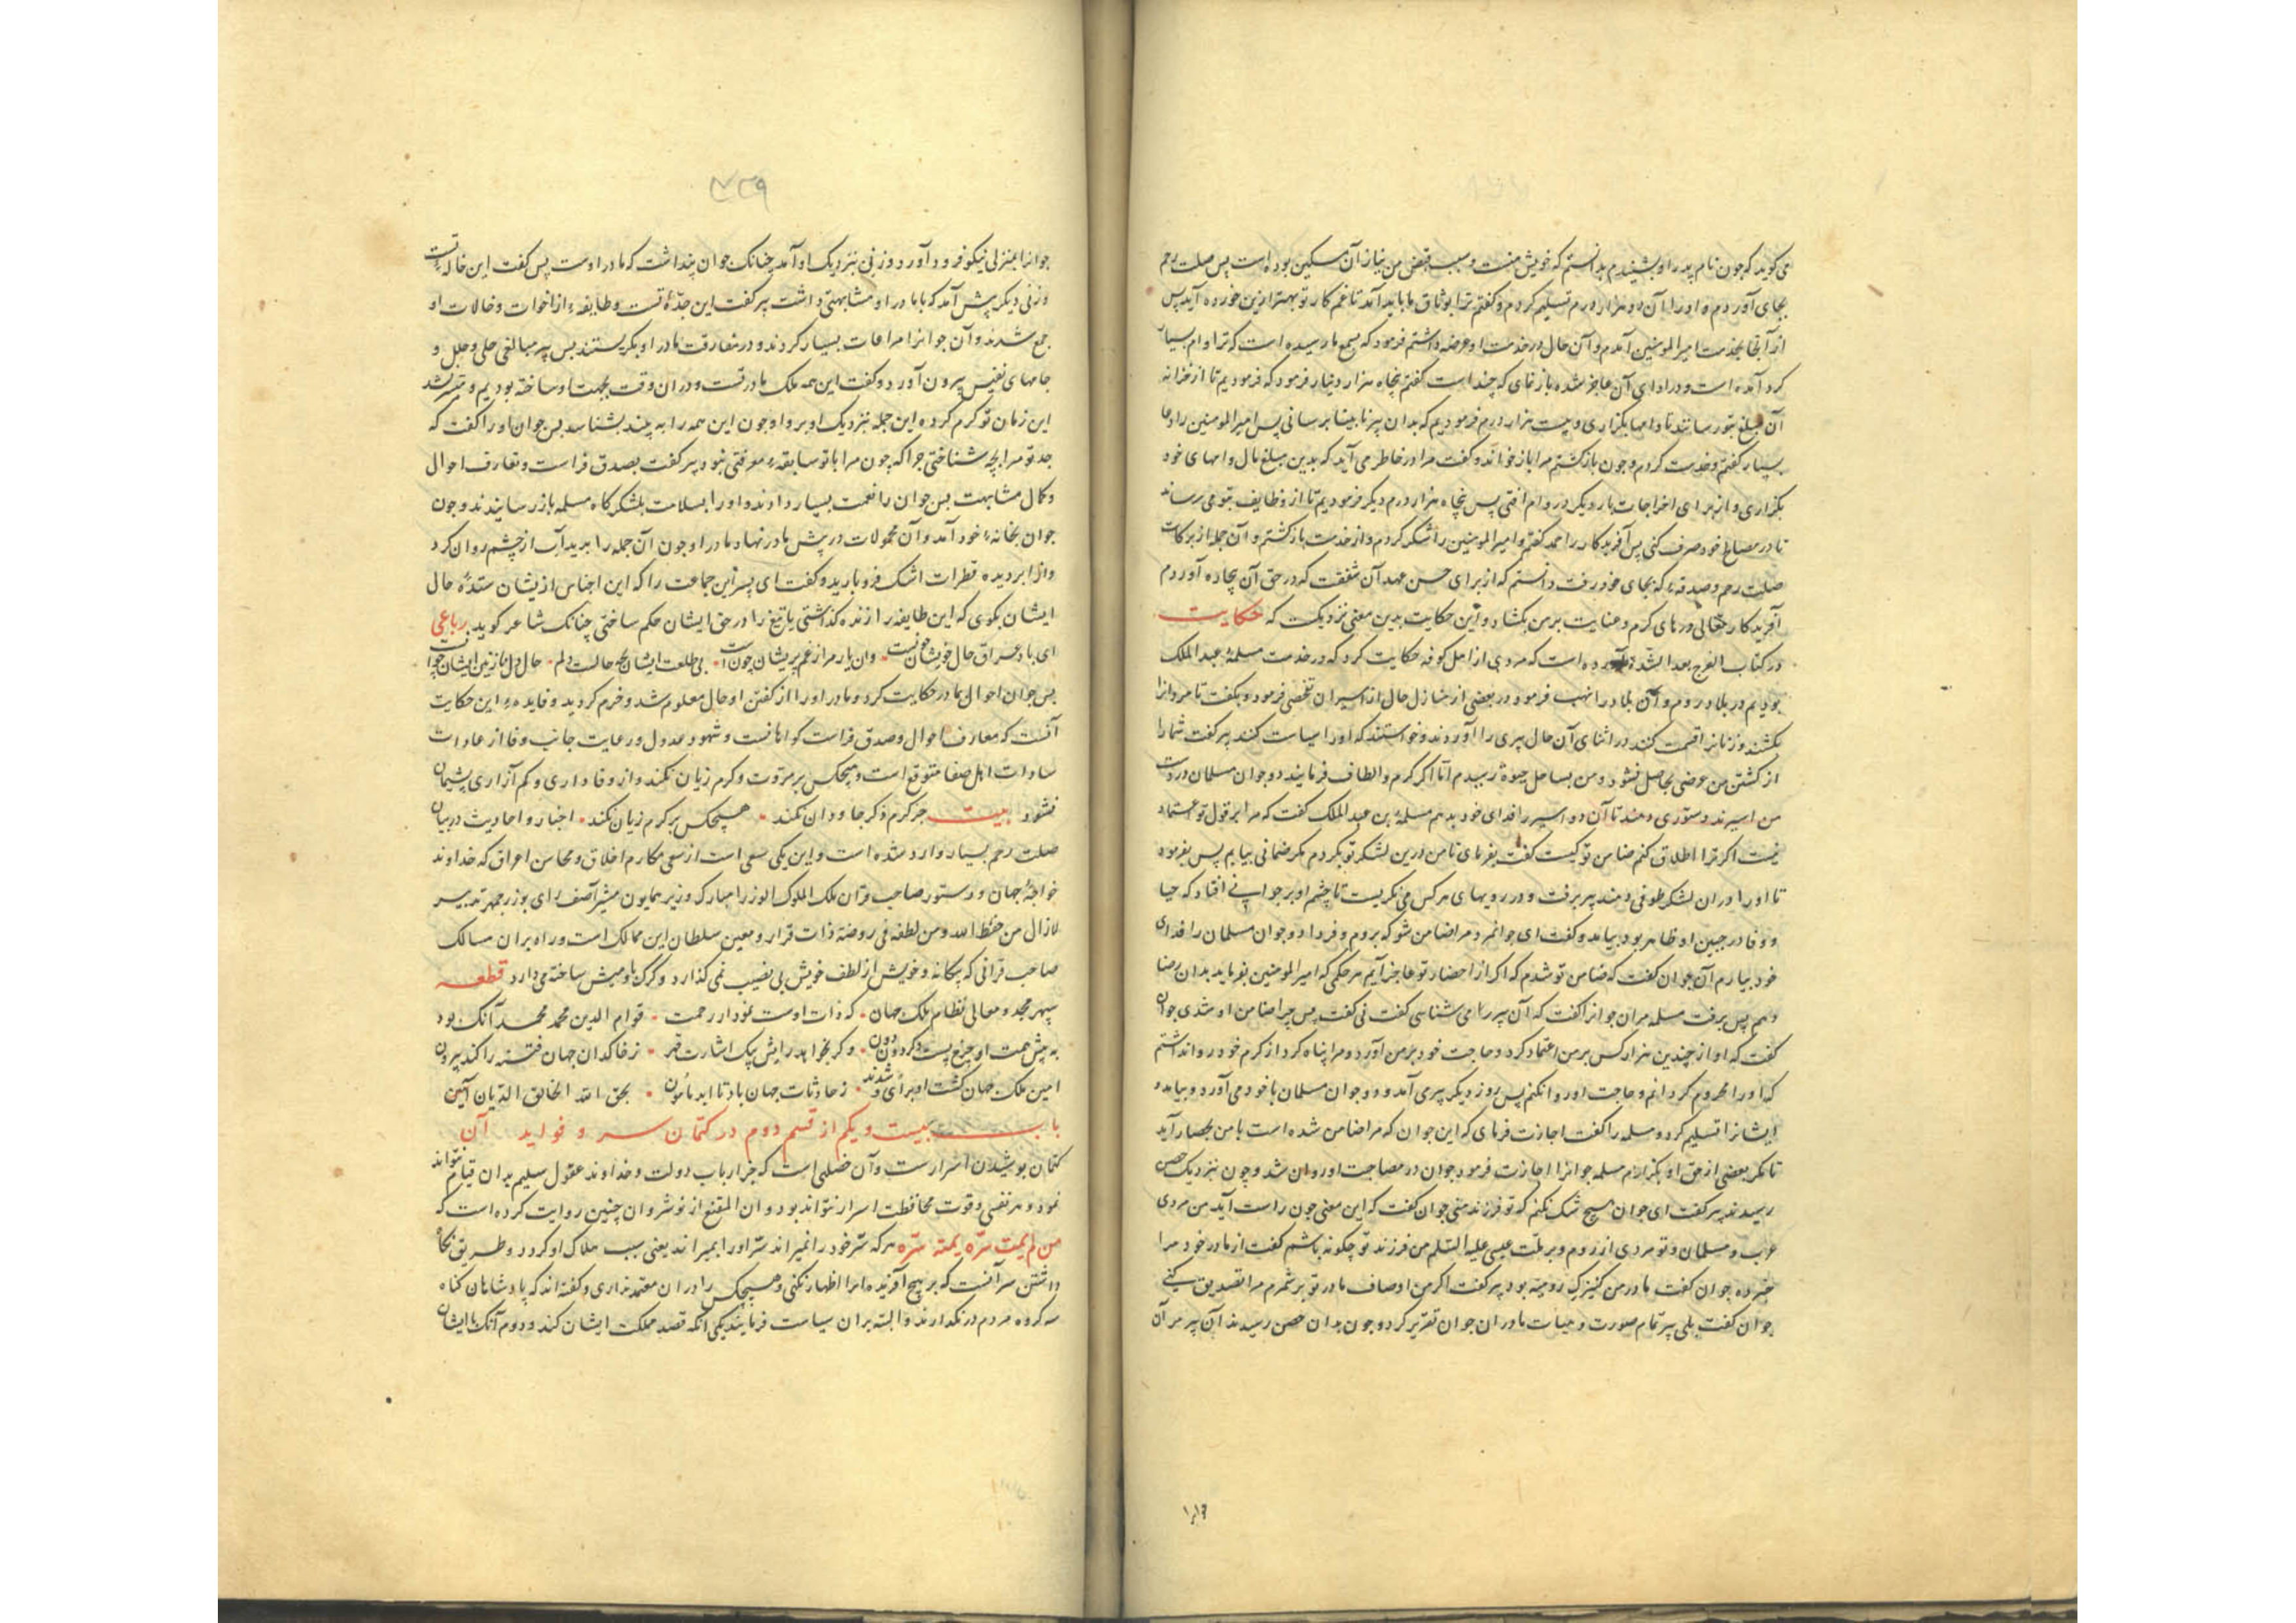 می‌کوید که چون نام پدر او بشنیدم بدانستم که خویش منست و سبب قبض من نیاز آن مسکین بوده است پس صلت رحم
بجای آوردم و او را آن دو هزار درم تسلیم کردم و کفتم ترا بوثاق ما باید آمد تا غم کار تو بهتر ازین خورده آید پس
از آنجا بخدمت امیر المومنین آمدم و آن حال در خدمت او عرضه داشتم فرمود که بسمع ما رسیده است که ترا وام بسیار
کرد آمده است و در ادای آن عاجز شده باز نمای که چند است کفتم پنجاه هزار دینار فرمود که فرمودیم تا از خزانه
آن مبلغ بتو رسانند تا وامها بکزاری و بیست هزار درم فرمودیم که بدان پیر نابینا برسانی پس امیر المومنین را دعا
بسیار کفتم و خدمت کردم و چون بازکشتم مرا باز خواند و کفت مرا در خاطر می آید که بدین مبلغ مال وامهای خود
بکزاری و از برای اخراجات بار دیکر در وام افتی پس پنجاه هزار درم دیکر فرمودیم تا از وظایف بتو می رساند
تا در مصالح خود صرف کنی پس آفریدکار را حمد کفتم و امیر المومنین را شکر کردم و از خدمت بازکشتم و آن جمله از برکات
صلت رحم و صدقه‌ء که بجای خود رفت دانستم که از برای حسن عهد آن شفقت که در حق آن بیچاره آوردم
آفریدکار تعالی درهای کرم و عنایت بر من بکشاد و این حکایت بدین معنی نزدیکست که حکایت
در کتاب الفرج بعد الشدة آورده است که مردی از اهل کوفه حکایت کرد که در خدمت مسلمۀ عبد الملک
بودیم در بلاد روم و آن بلاد را نهب فرمود در بعضی از منازل حال از اسیران تفحص فرمود و بکفت تا مردانرا
بکشند و زنانرا قسمت کنند در اثنای آن حال پیری را آوردند و خواستند که او را سیاست کنند پیر کفت شما را
از کشتن من عوضی حاصل نشود و من بساحل حیوة رسیدم اما اکر کرم و الطاف فرمایند دو جوان مسلمان در دست
من اسیرند دستوری دهند تا آن دو اسیر را فدای خود بدهم مسلمۀ بن عبد الملک کفت که مرا بر قول تو اعتماد
نیست اکر ترا اطلاق کنم ضامن تو کیست کفت بفرمای تا من درین لشکر تو بکردم مکر ضمانی بیابم پس بفرمود
تا او را در ان لشکر طوفی دهند پیر برفت و در رویهای هر کس می نکریست تا چشم او بر جوانی افتاد که حیا
و وفا در جبین او ظاهر بود بیامد و کفت ای جوانمرد مرا ضامن شو که بروم و فردا دو جوان مسلمان را فدای
خود بیارم آن جوان کفت که ضامن تو شدم که اکر از احضار تو عاجز آیم هر حکمی که امیر المومنین بفرماید بدان رضا
دهم پس برفت مسلمه مر ان جوانرا کفت که آن پیر را می شناسی کفت نی کفت پس چرا ضامن او شدی جوان
کفت که او از چندین هزار کس بر من اعتماد کرد و حاجت خود بر من آورد و مرا پناه کرد از کرم خود روا نداشتم
که او را محروم کردانم و حاجت او روا نکنم پس روز دیکر پیری آمد و دو جوان مسلمان با خود می آورد و بیامد
ایشانرا تسلیم کرد و مسلمه را کفت اجازت فرمای که این جوان که مرا ضامن شده است با من بحصار آید
تا مکر بعضی از حق او بکزارم مسلمه جوانرا اجازت فرمود جوان در مصاحبت او روان شد و چون نزدیک حصن
رسیدند پیر کفت ای جوان هیچ شک نکنم که تو فرزند منی جوان کفت که این معنی چون راست آید من مردی
عرب و مسلمان و تو مردی از روم و بر ملت عیسی علیه السلم من فرزند تو چکونه باشم کفت از مادر خود مرا
خبر ده جوان کفت مادر من کنیزکی رومیه بود پیر کفت اکر من اوصاف مادر تو بر شمرم مرا تصدیق کنی
جوان کفت بلی پیر تمام صورت و هیات مادر ان جوان تقریر کرد و چون بدان حصن رسیدند آن پیر مر آن
۴۳۹
جوانرا بمنزلی نیکو فرود آورد و زنی بنزدیک او آمد چنانک جوان پنداشت که مادر اوست پس کفت این خالۀ تست
و زنی دیکر پیش آمد که با مادر او مشابهتی داشت پیر کفت این جدۀ تست و طایفه‌ء از اخوات و خالات او
جمع شدند و آن جوانرا مراعات بسیار کردند و در مفارقت مادر او بکریستند پس پیر مبالغی حلی و حلل و
جامهای نفیس بیرون آورد و کفت این همه ملک مادر تست و در ان وقت بجهت او ساخته بودیم و میسر نشد
این زمان تو کرم کرده این جمله بنزدیک او بر و او چون این همه را به بیند بشناسد پس جوان او را کفت که
جد تو مرا بچه شناختی چرا که چون مرا با تو سابقه‌ء معرفتی نبود پیر کفت بصدق فراست و تعارف احوال
و کمال مشابهت پس جوان را نعمت بسیار دادند و او را بسلامت بلشکرکاه مسلمه باز رسانیدند و چون
جوان بخانه‌ء خود آمد و آن محمولات در پیش مادر نهاد مادر او چون آن جمله را بدید آب از چشم روان کرد
و از ابر دیده قطرات اشک فرو بارید و کفت ای پسر این جماعت را که این اجناس از یشان ستدۀ حال
ایشان بکوی که این طایفه را زنده کذاشتی یا تیغ را در حق ایشان حکم ساختی چنانک شاعر کوید رباعی
ای باد عراق حال خویشان چونست • وان یار مرا از غم پریشان چونست • بی طلعت ایشان بچه حالست دلم • حال دل نازنین ایشان چونست
پس جوان احوال بمادر حکایت کرد و مادر او را از کفتن او حال معلوم شد و خرم کردید و فایده‌ء این حکایت
آنست که معارف احوال و صدق فراست کواهانست و شهود عدول و رعایت جانب وفا از عادات
سادات اهل صفا متوقع است و هیچکس بر مروت و کرم زیان نکند و از وفاداری و کم آزاری پشیمان
نشود بیت جز کرم ذکر جاودان نکند • هیچکس بر کرم زیان نکند • اخبار و احادیث در بیان
صلت رحم بسیار وارد شده است و این یکی سعی است از سعی مکارم اخلاق و محاسن اعراق که خداوند
خواجۀ جهان و دستور صاحب قران ملک الملوک الوزرا مبارک وزیر همایون مشیر آصف رای بوزرجمهر تدبیر
لازال من حفظ الله و من لطفه فی روضة ذات قرار و معین سلطان این ممالک است و راه بران مسالک
صاحب قرانی که بیکانه و خویش از لطف خویش بی نصیب نمی کذارد و کرک با میش ساخته می دارد قطعه
سپهر مجد و معالی نظام ملک جهان • که ذات اوست نمودار رحمت • قوام الدین محمد محمد آنک بود
به پیش همت او چرخ پست کردون دون • و کر بخواهد رایش بیک اشارت قهر • ز خاکدان جهان فتنه را کند بیرون
امین ملک جهان کشت او برای وند • ز حادثات جهان باد تا ابد مأمون • بحق الله الخالق الدیان آمین
باب بیست و یکم از قسم دوم در کتمان سر و فواید آن
کتمان پوشیدن اسرارست و آن خصلتی است که جز ارباب دولت و خداوند عقول سلیم بدان قیام نتواند
نمود و هر نفسی و قوت محافظت اسرار نتواند بود و ابن المقنع از نوشروان چنین روایت کرده است که
من لم یمت سره یمته سره هر که سر خود را نمیراند سر او را بمیراند یعنی سبب هلاک او کردد و طریق نکاه
داشتن سر آنست که بر هیچ آفریده انرا اظهار نکنی و هیچکس را در ان معتمد نداری و کفته اند که پادشاهان کناه
سه کروه مردم در نکذارند و البته بران سیاست فرمایند یکی آنکه قصد مملکت ایشان کند و دوم آنک با ایشان